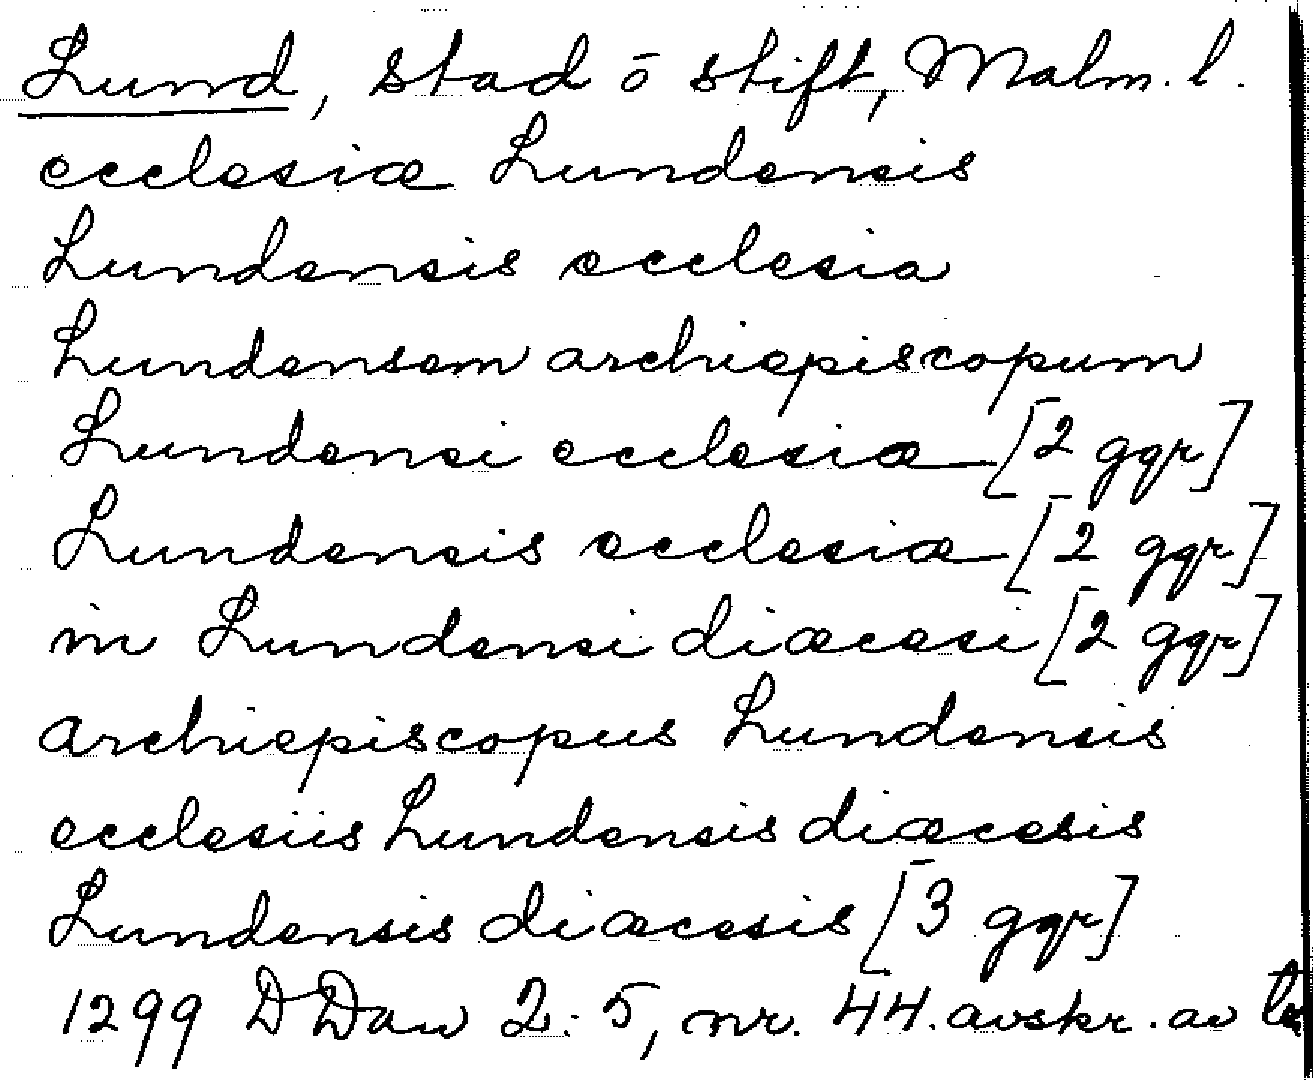 Lund, stad ō stift, Malm. l.
ecclesiæ Lundensis
Lundensis ecclesia
Lundensem archiepiscopum
Lundensi ecclesiæ [2 ggr]
Lundensis ecclesiæ [2 ggr]
in Lundensi diæcesi [2 ggr]
archiepiscopus Lundensis
ecclesiis Lundensis diæcesis
Lundensis diæcesis [3 ggr]
1299 DDan 2:5, nr. 44. avskr. av